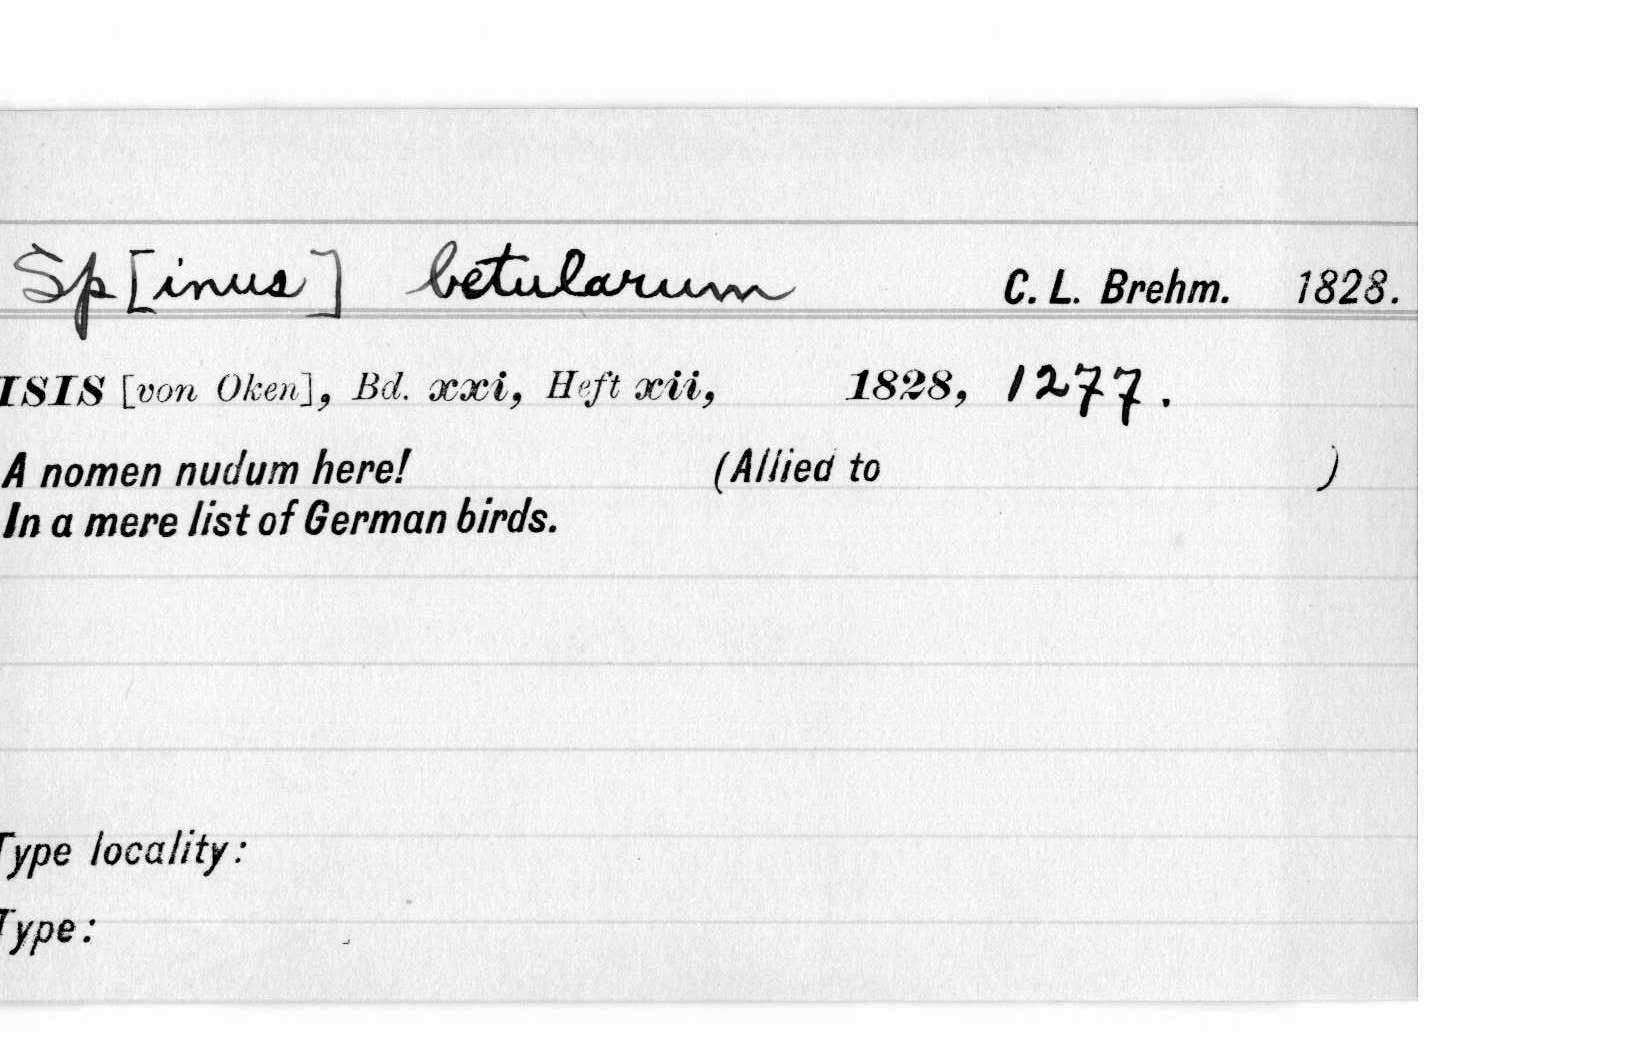 Sp[inus] betularum C. L. Brehm. 1828.
ISIS [von Oken], Bd. xxi, Heft xii, 1828, 1277.
A nomen nudum here! (Allied to )
In a mere list of German birds.
Type locality:
Type: